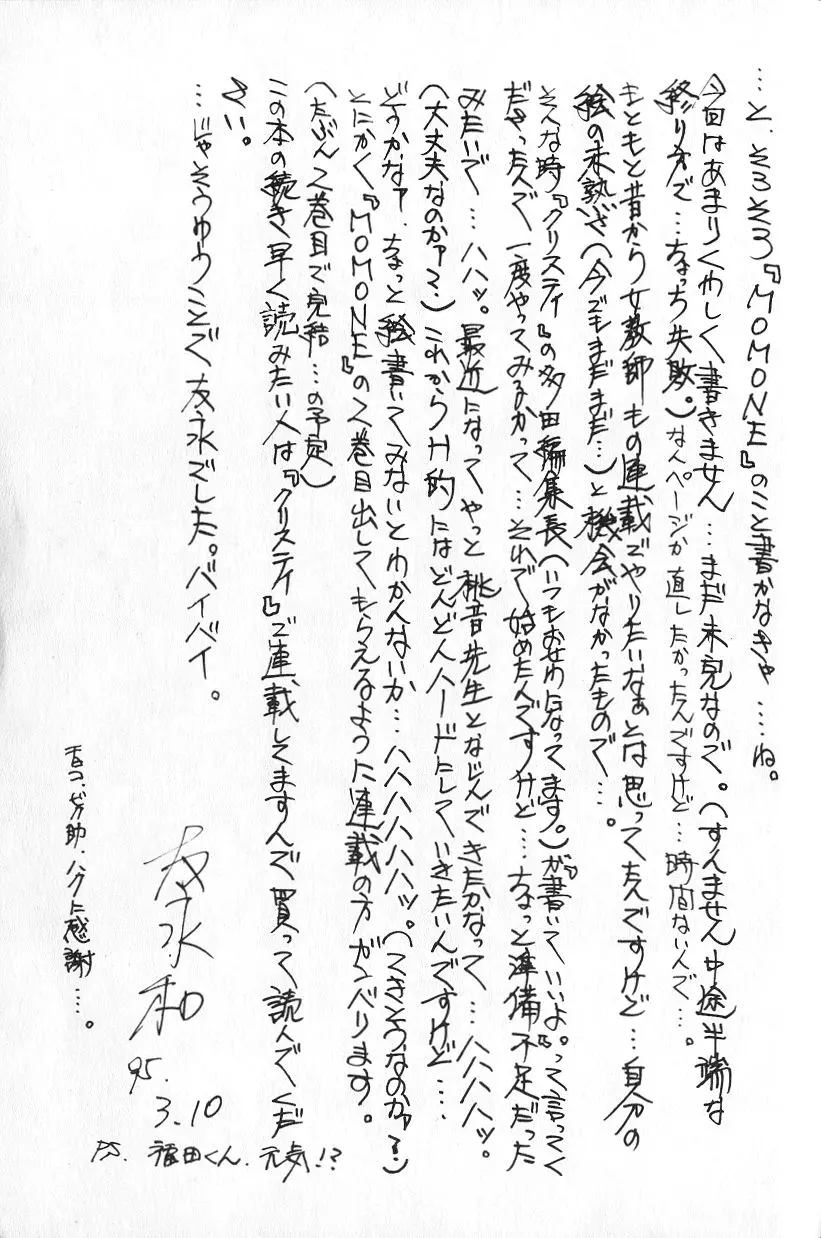 …と、そろそろ『MOMONE』のこと書かなきゃ…ね。
今回はあまりくわしく書きません…まだ未完なので。(すんません中途半端な
終り方で…ちょっち失敗。)なんページか直したかったんですけど…時間ないんで…。
もともと昔から女教師もの連載でやりたいなぁとは思ってたんですけど…自分の
絵の未熟さ(今でもまだまだ…)と機会がなかったもので…。
そんな時『クリスティ』の多田編集長(いつもお世わになってます。)が『書いていいよ。』って言ってく
ださったんで一度やってみるかって…それで始めたんですけど…ちょっと準備不足だった
みたいで…ハハッ。最近になってやっと桃音先生となじんできたかなって…ハハハハッ。
(大丈夫なのかァ?)これからH的にはどんどんハードにしていきたいんですけど…
どうかなァ、ちょっと絵書いてみないとわかんないか…ハハハハハハッ。(てきそうなのかァ?)
とにかく『MOMONE』の2巻目出してもらえるように連載の方ガンバります。
(たぶん2巻目で完結…の予定)
この本の続き早く読みたい人は『クリスティ』で連載してますんで買って読んでくだ
さい。
…じゃそうゆうことで友永でした。バイバイ。
友永和
95.
3.10
P.S. 福田くん、元気!?
助、ハクに感謝…。